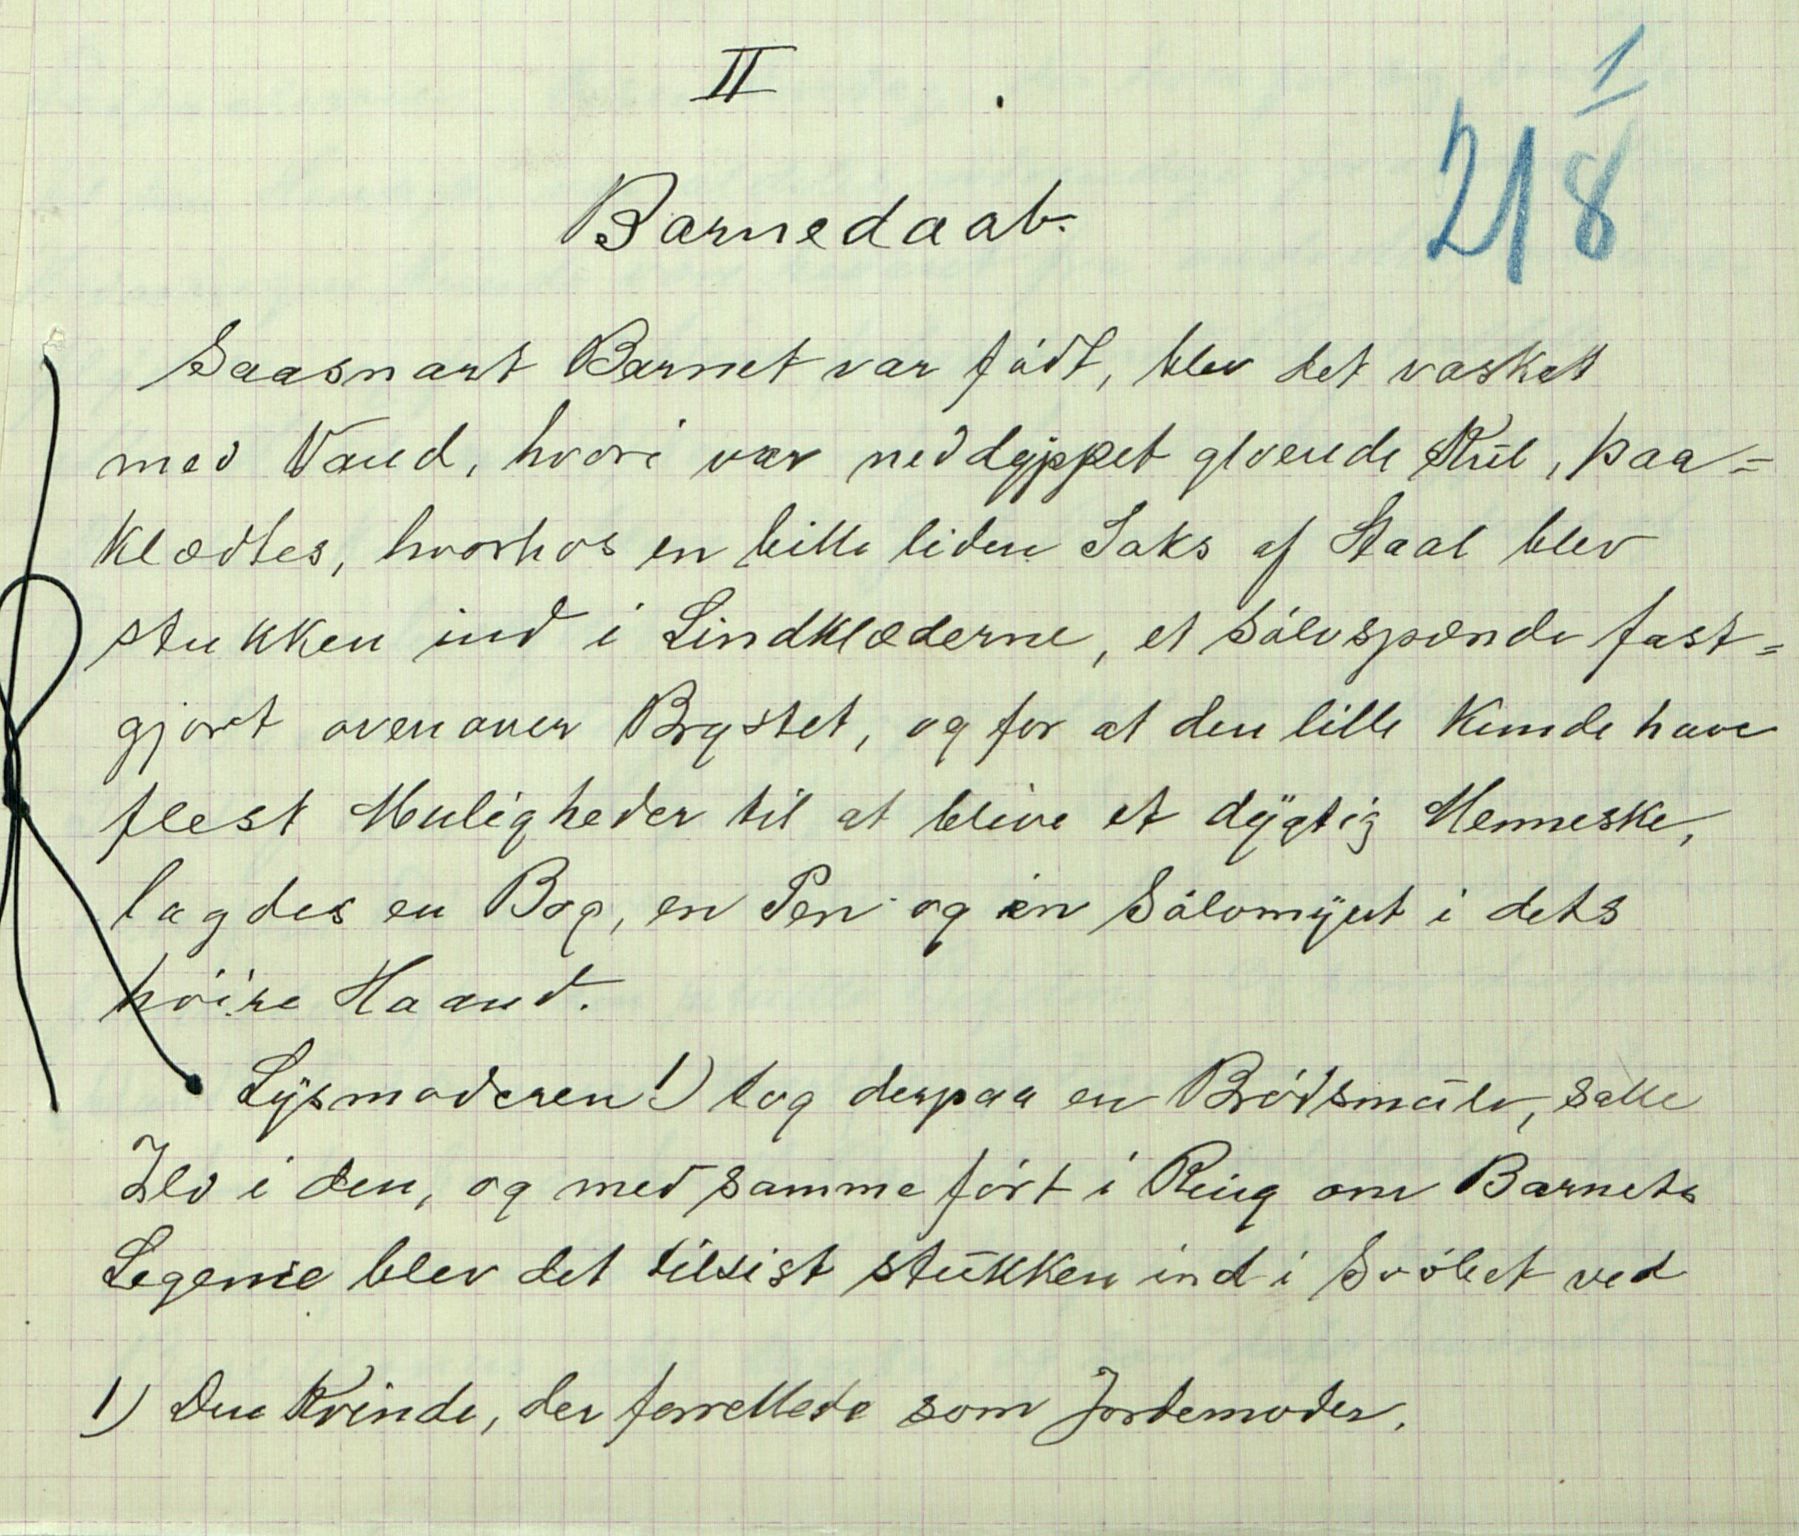 II
1
218
Barnedaab.
Saasnart Barnet var født, blev det vasket
med Vand, hvori var neddyppet gloende Kul, paa=
klædtes, hvorhos en bitte liden Saks af Staal blev
stukken ind i Lindklæderne, et Sølvspænde fast=
gjort ovenover Brystet, og for at den lille kunde have
flest Muligheder til at blive et dygtig Menneske,
lagdes en Bog, en Pen og en Sølvmynt i dets
høire Haand.
Lysmoderen 1) tog derpaa en Brødsmule, satte
Ild i den, og med samme ført i Ring om Barnets
Legeme blev det tilsist stukken ind i Svøbet ved
1) Den Kvinde, der forrettede som Jordemoder.